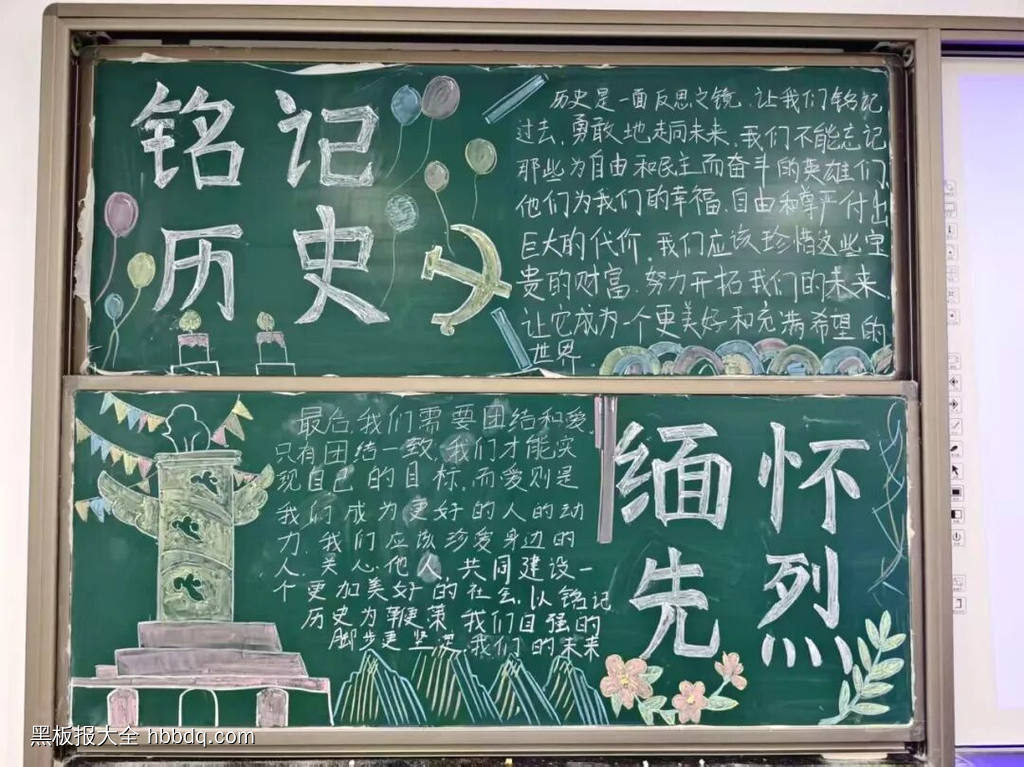 铭记
历史
历史是一面反思之镜,让我们铭记
过去,勇敢地走向未来,我们不能忘记
那些为自由和民主而奋斗的英雄们,
他们为我们的幸福,自由和尊严付出
巨大的代价,我们应该珍惜这些宝
贵的财富,努力开拓我们的未来,
让它成为一个更美好和充满希望的
世界.
最后,我们需要团结和爱,
只有团结一致,我们才能实
现自己的目标,而爱则是
我们成为更好的人的动
力.我们应该珍爱身边的
人.关心他人,共同建设一
个更加美好的社会,以铭记
历史为鞭策,我们自强的
脚步更坚定,我们的未来
缅怀
先烈
黑板报大全 hbbdq.com